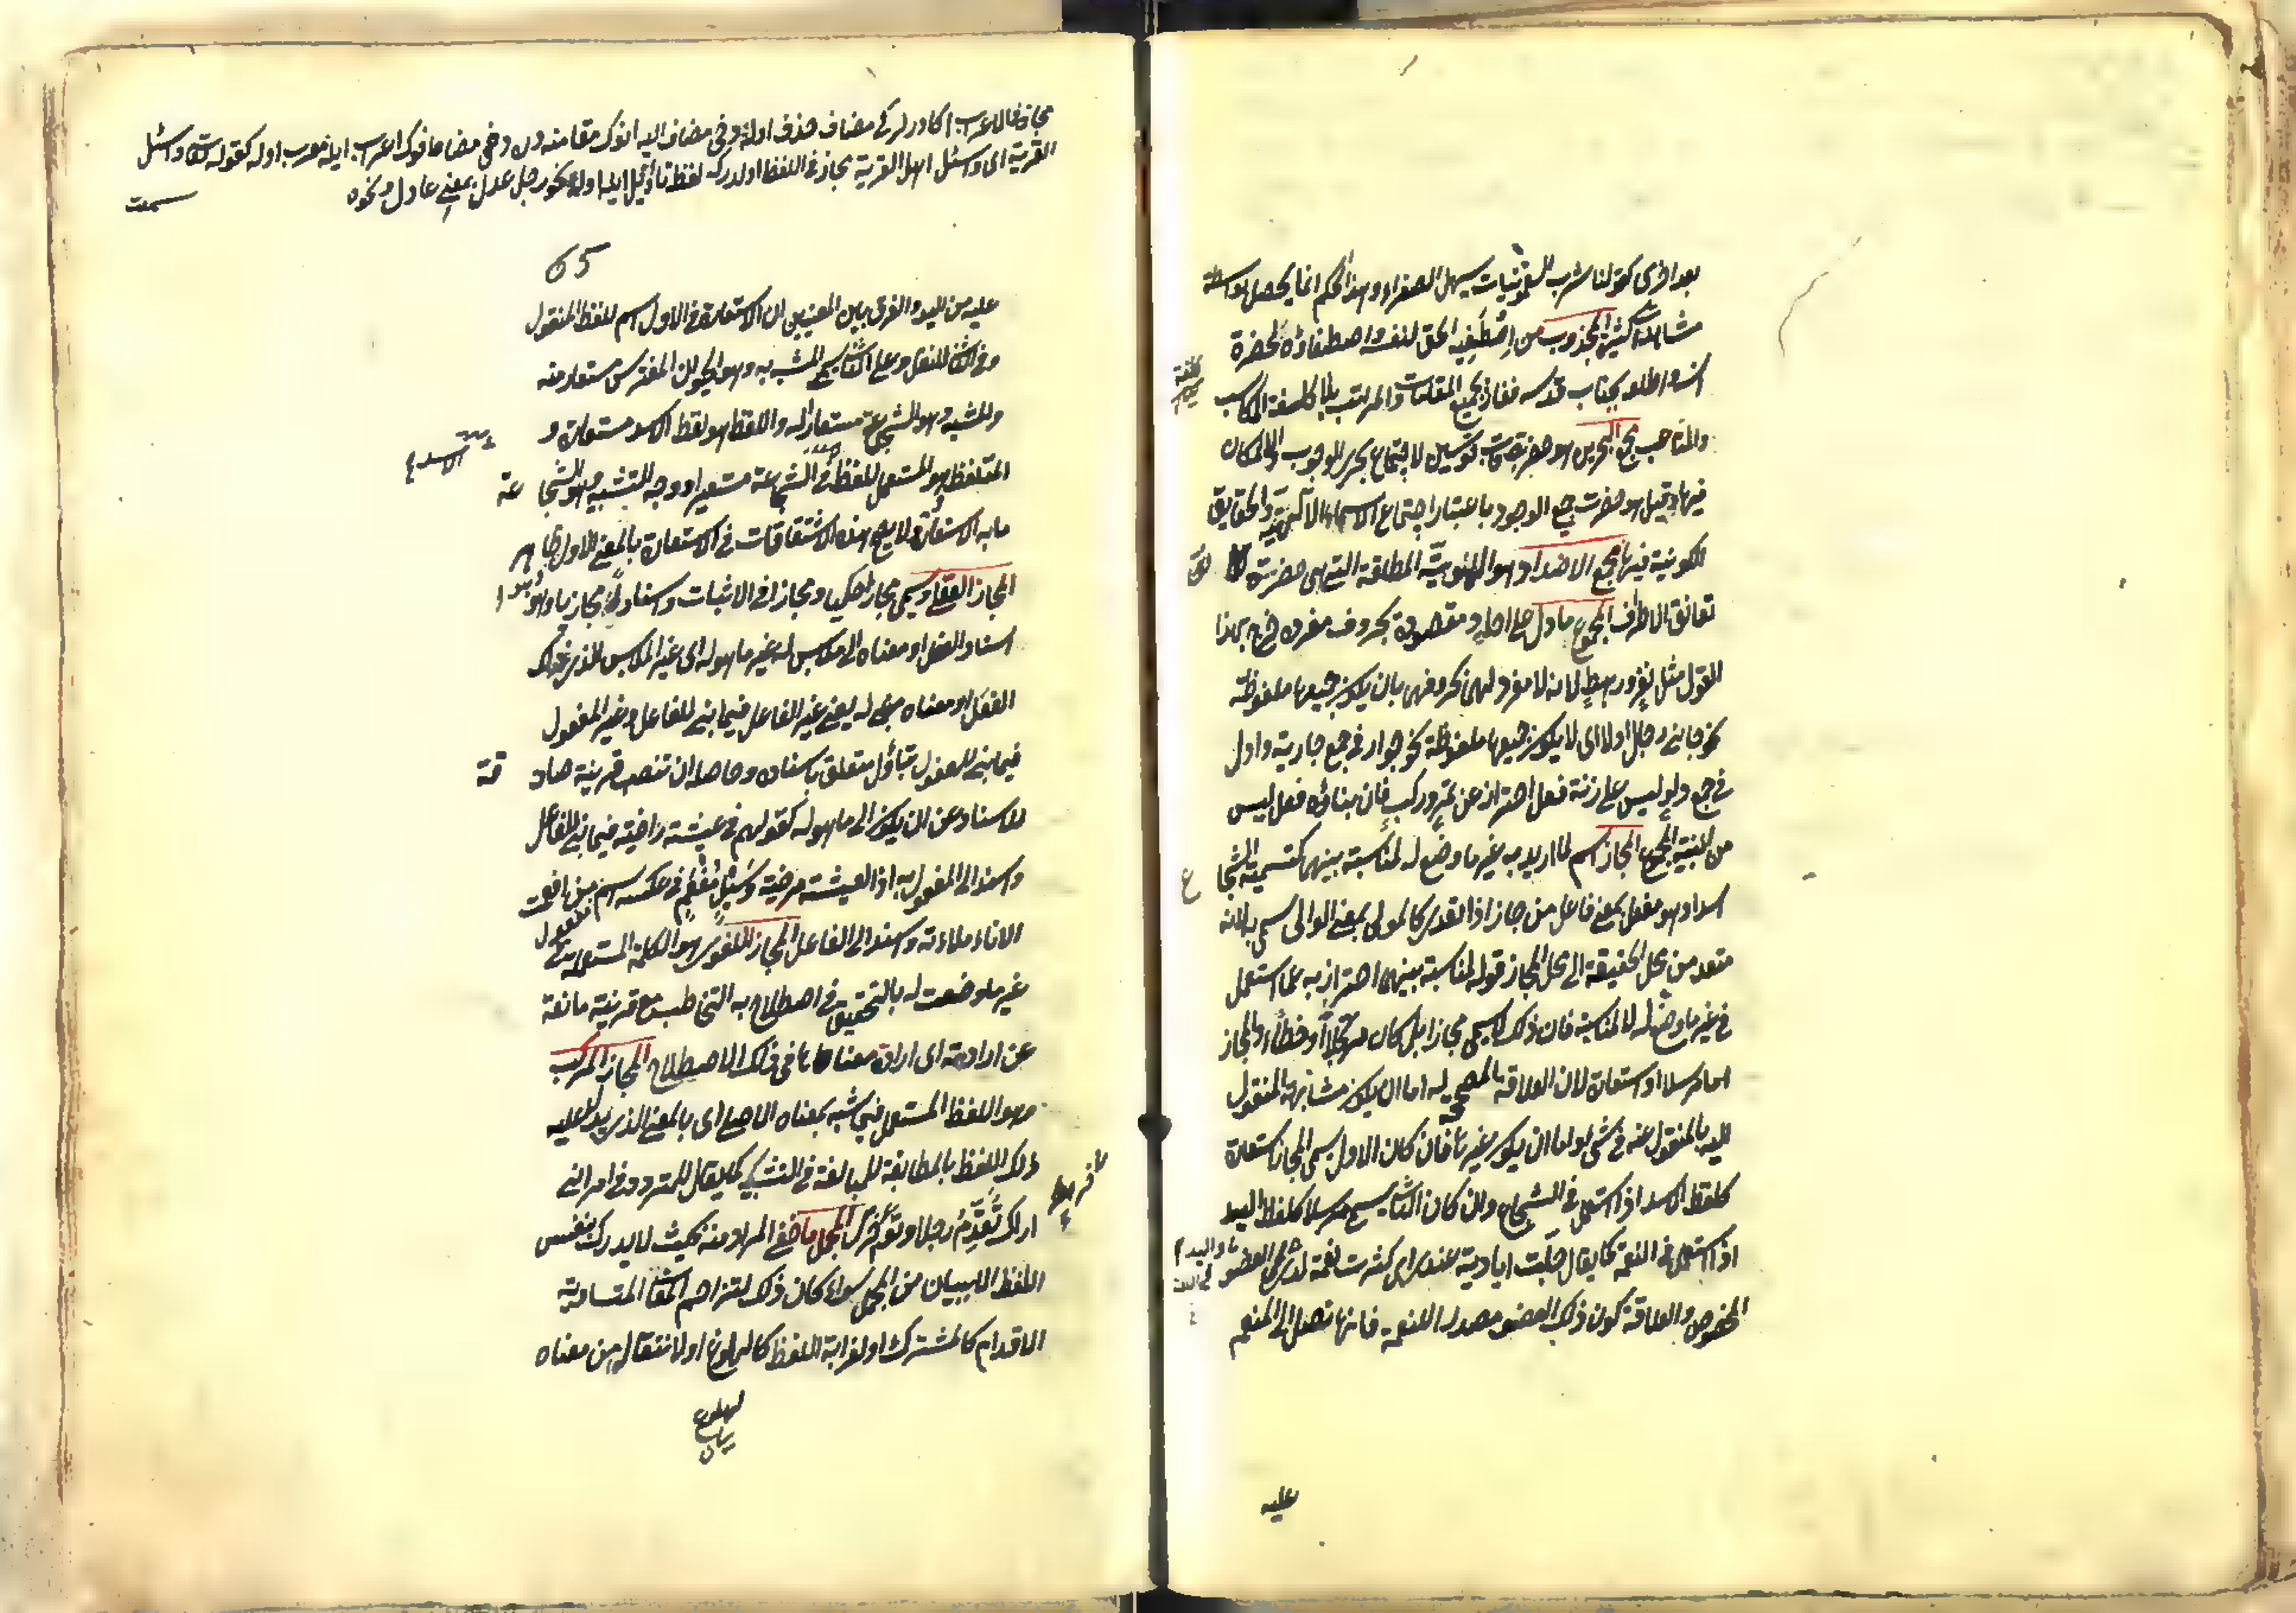 بعد اخرى كقولنا شرب السقمونيات يسهل الصفراء وهذا الحكم انما يحصل بواسطة
مشاهدات كثيرة المجذوب من اصطفيه الحق لنفسه واصطفاؤه لحضرة
انسه واطلعه بجناب قدسه ففاز بجميع المقامات والمراتب بلا كلفة المكاسب
والمتاعب مجمع البحرين هو حضرة قاب قوسين لاجتماع بحرى الوجوب والامكان
فيها وقيل هو حضرت جمع الوجود باعتبار اجتماع الاسماء الالهية والحقايق
الكونية فيها مجمع الاضداد هو الهوية المطلقة التى هى حضرة
تعانق الاطراف المجموع ما دل على احاد مقصودة بحروف مفرده خرج بهذا
القول مثل نفر ورهط لانه لا مفرد لهما بحروفهما بان يكون جميعها ملفوظة
نحو جائنى رجال اولا اى لا يكون جميعها ملفوظة نحو جوار فى جمع جارية وادل
فى جمع دلو ليس على زنة فعل احتراز عن تمر وركب فان بناؤه فعل ليس
من ابنية الجمع المجاز اسم لما اريد به غير ما وضع له لمناسبة بينهما كتسمية الشجاع
اسدا وهو مفعل بمعنى فاعل من جاز اذا تعدى كالمولى بمعنى الوالى سمى به لانه
متعد من محل الحقيقة الى محل المجاز قوله لمناسبة بينهما احترز به عما استعمل
فى غير ما وضع له لا لمناسبة فان ذلك لا يسمى مجازا بل كان مرتجلا او خطأ والمجاز
اما مرسلا او استعارة لان العلاقة المصححة له اما ان يكون مشابهة المنقول
اليه بالمنقول عنه فى شئ او اما ان يكون غيرها فان كان الاول يسمى المجاز استعارة
كلفظ الاسد اذا استعمل فى الشجاع وان كان الثانى يسمى مرسلا كلفظ اليد
اذا استعمل فى النعمة كما يقال جلت اياديه عندى اى كثرت نعمه لدى واليد فى اللغة العضو
المخصوص والعلاقة كون ذلك العضو مصدرا للنعمة فانها تصل الى المنعم
عليه
مجاز فى الاعراب اكا ديرلر كه مضاف حذف اولنه وفى مضاف اليه انوك مقامنه دن وخى مضافوك اعرابى ايله معرب اوله كقوله تعالى واسئل
القرية اى واسئل اهل القرية مجاز فى اللفظ اولدركه لفظ تأويل ايله اوله نحو رجل عدل بمعنى عادل ونحوه
65
عليه من اليد والفرق بين المعنيين ان الاستعارة فى الاول اسم للفظ المنقول
وفى الثانى للنقل وعلى الثانى يسمى المشبه به وهو الحيوان المفترس مستعار منه
والمشبه وهو الشجاع مستعارا له واللفظ هو لفظ الاسد مستعارا و
المتلفظ وهو المستعمل للفظ الاسد فى الشجاعة مستعيرا ووجه التشبيه وهو الشجاعة
ما به الاستعارة ولا يصح هذه الاشتقاقات فى الاستعارة بالمعنى الاول ظاهر
المجاز العقلى ويسمى مجازا حكميا ومجازا فى الاثبات واسنادا مجازيا وهو
اسناد الفعل او معناه الى ملابس له غير ما هو له اى غير الملابس الذى ذلك
الفعل او معناه مبنى له يعنى غير الفاعل فيما بنى للفاعل وغير المفعول
فيما بنى للمفعول بتأول متعلق باسناده وحاصله ان تنصب قرينة صارفة
للاسناد عن ان يكون الى ما هو له كقولهم فى عيشة راضية فيما بنى للفاعل
واسند الى المفعول به اذ العيشة مرضية وسيل مفعم فى عكسه اسم مفعول من افعمت
الاناء ملاءته واسند الى الفاعل المجاز اللغوى هو الكلمة المستعملة فى
غير ما وضعت له بالتحقيق فى اصطلاح به التخاطب مع قرينة مانعة
عن ارادته اى ارادة معناها فى ذلك الاصطلاح المجاز المركب
هو اللفظ المستعمل فيما شبه بمعناه الاصلى اى بالمعنى الذى يدل عليه
ذلك اللفظ بالمطابقة للمبالغة فى التشبيه كما يقال للمتردد فى امر انى
اراك تقدم رجلا وتؤخر اخرى المجمل ما خفى المراد منه بحيث لا يدرك بنفس
اللفظ الا ببيان من المجمل سواء كان ذلك لتزاحم المعانى المتساوية
الاقدام كالمشترك او لغرابة اللفظ كالهلوع او لانتقاله من معناه